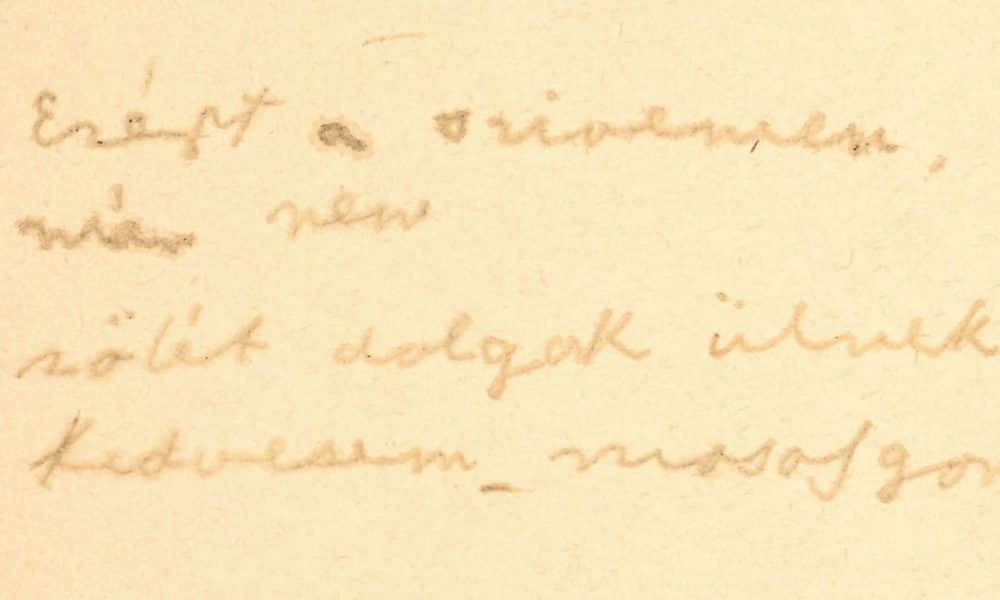 Ezért a szívemen,
már nem
sölét dolgok ülnek
kedvesem – mosolygom